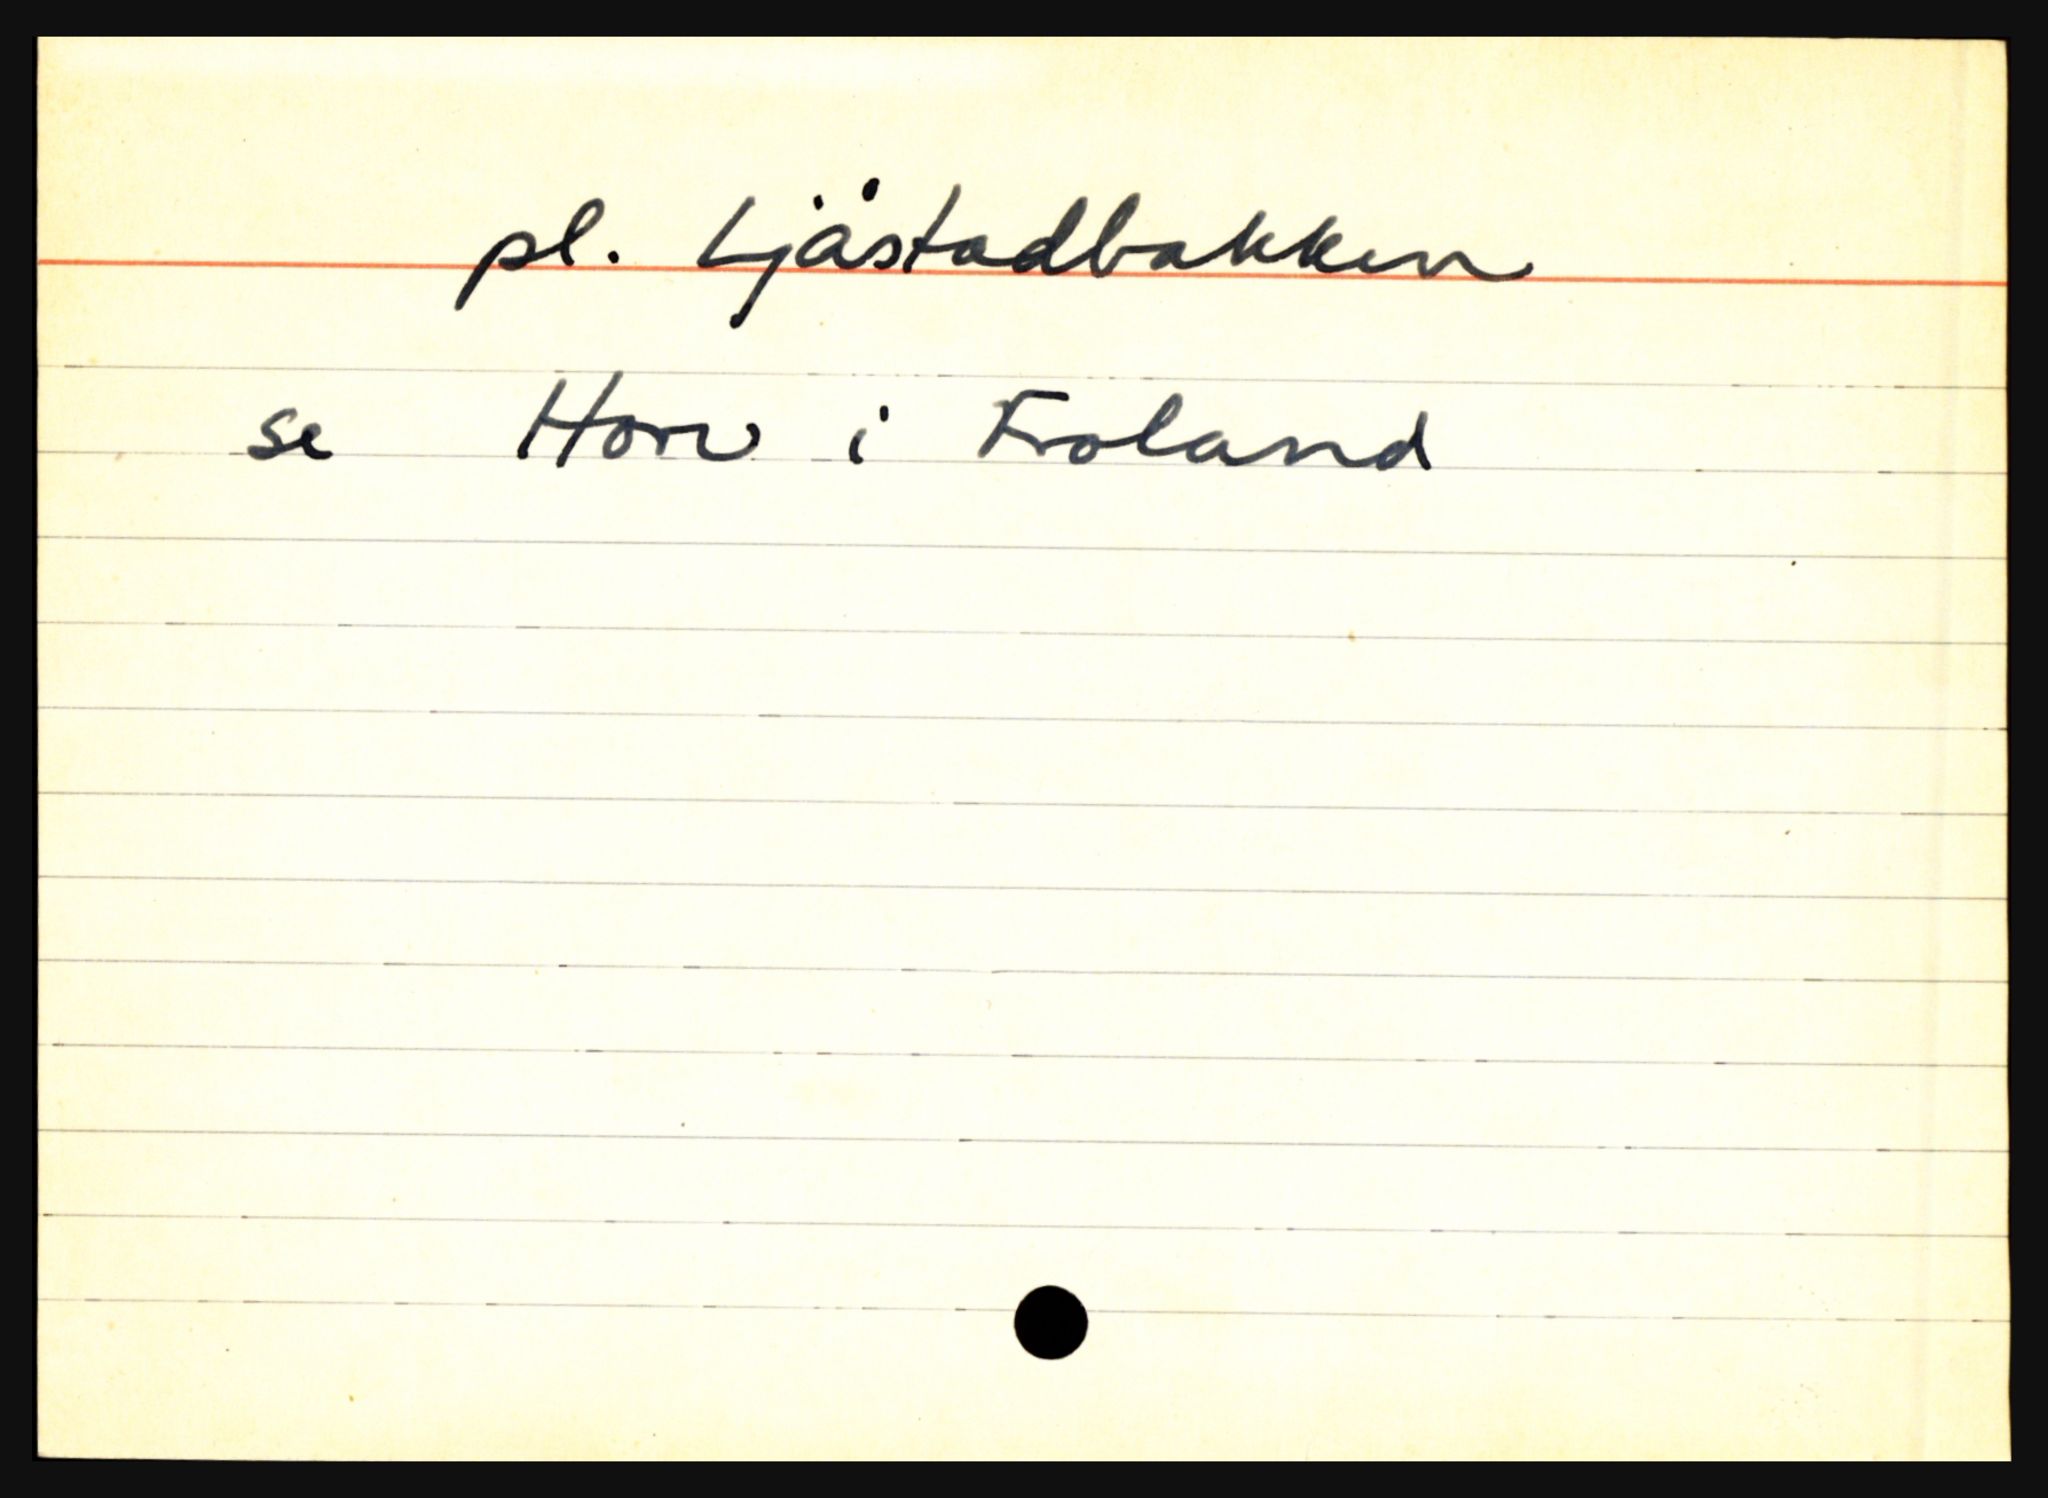 pl. Ljåstadbakken
se Horv i Froland